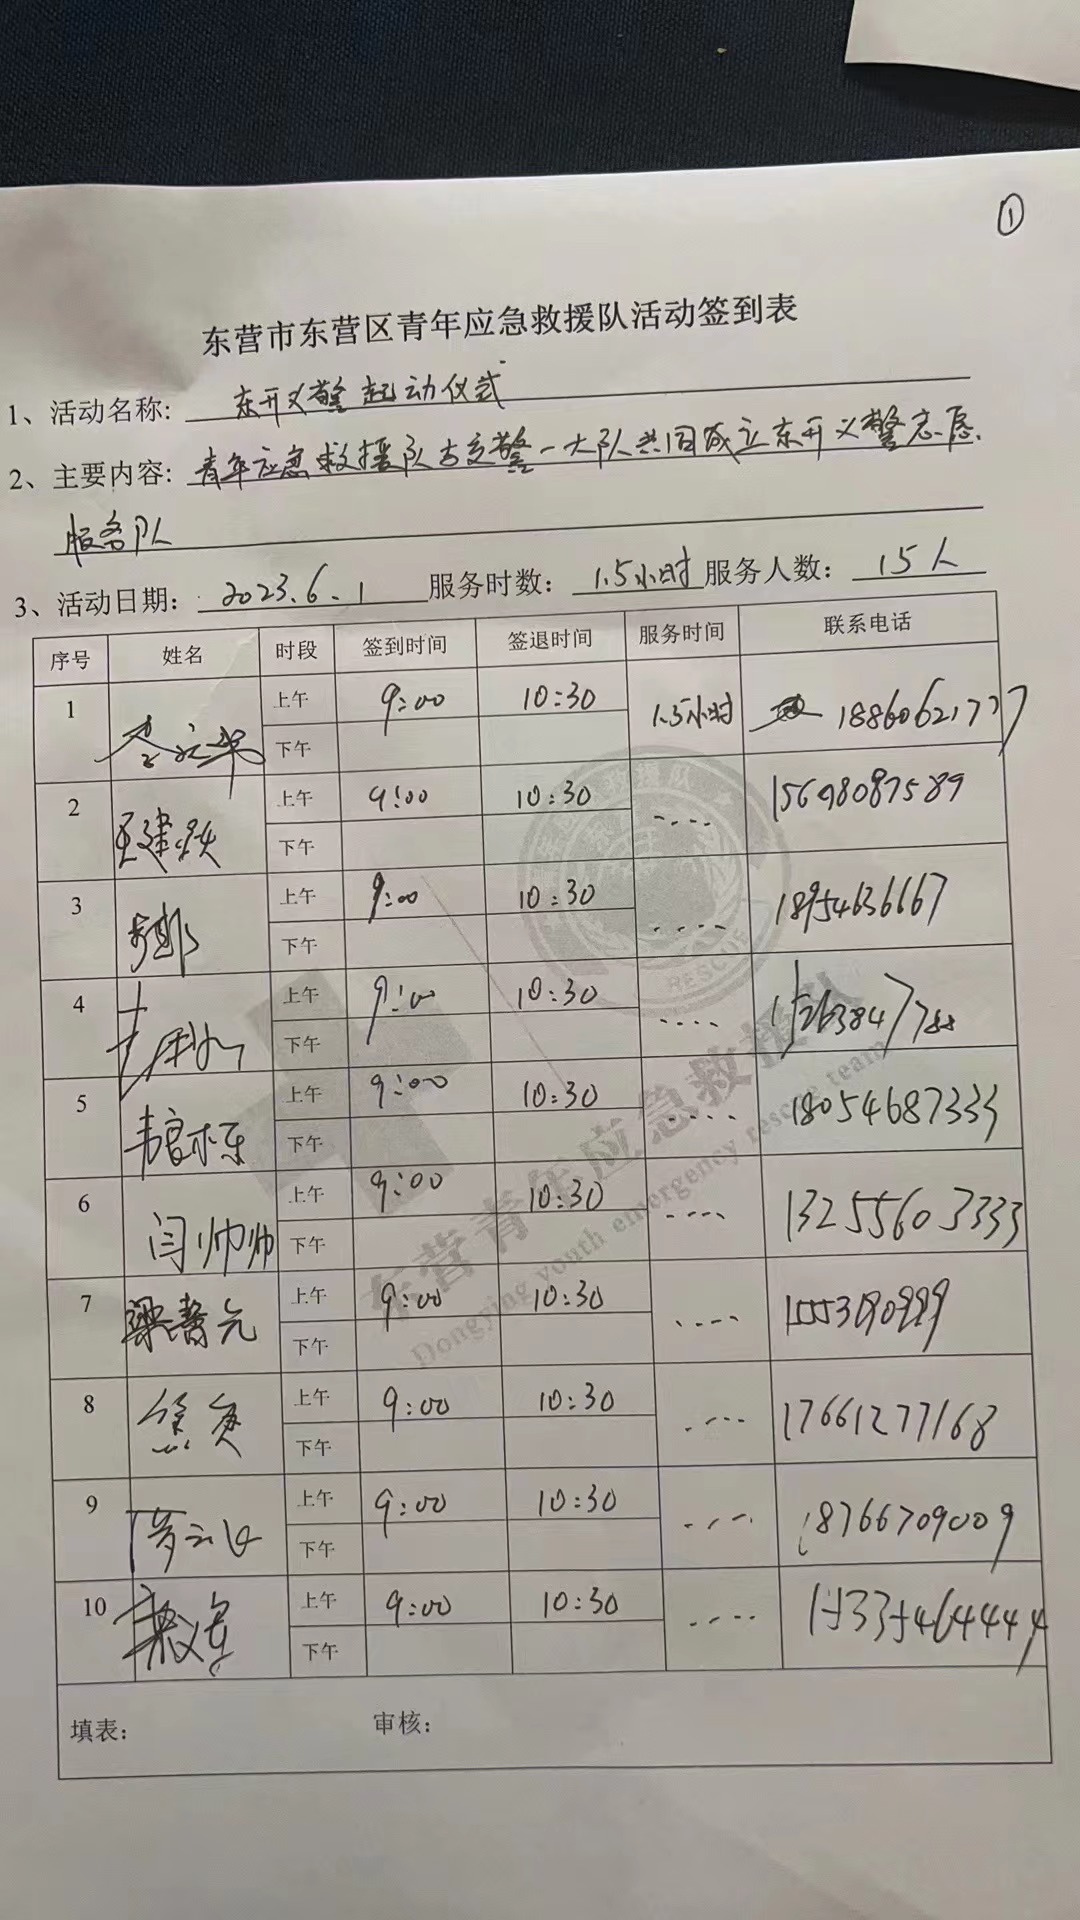 ①
东营市东营区青年应急救援队活动签到表
1、活动名称: 东开义警起动仪式
2、主要内容: 青年应急救援队与交警一大队共同成立东开义警志愿
服务队
3、活动日期: 2023.6.1 服务时数: 1.5小时 服务人数: 15人
序号 姓名 时段 签到时间 签退时间 服务时间 联系电话
1 上午 9:00 10:30 1.5小时 18860621777
下午
2 上午 9:00 10:30 ---- 15698087589
下午
3 上午 9:00 10:30 ---- 18954636667
下午
4 上午 9:00 10:30 ----
下午
5 上午 9:00 10:30 ---- 18054687333
下午
6 闫帅帅 上午 9:00 10:30 ---- 13255603333
下午
7 上午 9:00 10:30 ----
下午
8 上午 9:00 10:30 ---- 17661277168
下午
9 上午 9:00 10:30 ---- 18766709009
下午
10 上午 9:00 10:30 ---- 15335464444
下午
填表: 审核:
东营青年应急救援队
Dongying youth emergency rescue team
RESCUE